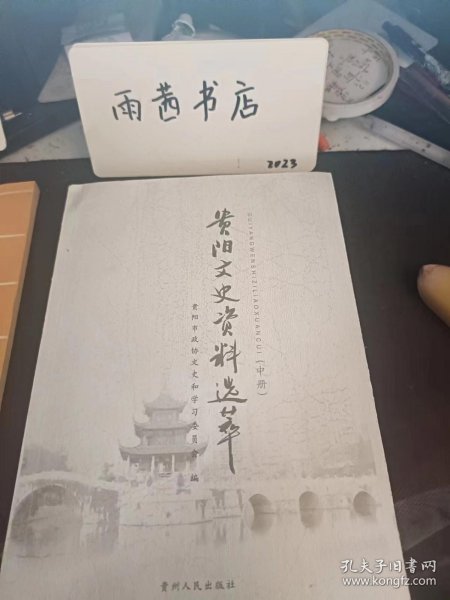 雨茜书店
2023
贵阳文史资料选萃
GUIYANGWENSHIZILIAOXUANCUI（中册）
贵阳市政协文史和学习委员会 编
贵州人民出版社
孔夫子旧书网
www.kongfz.com